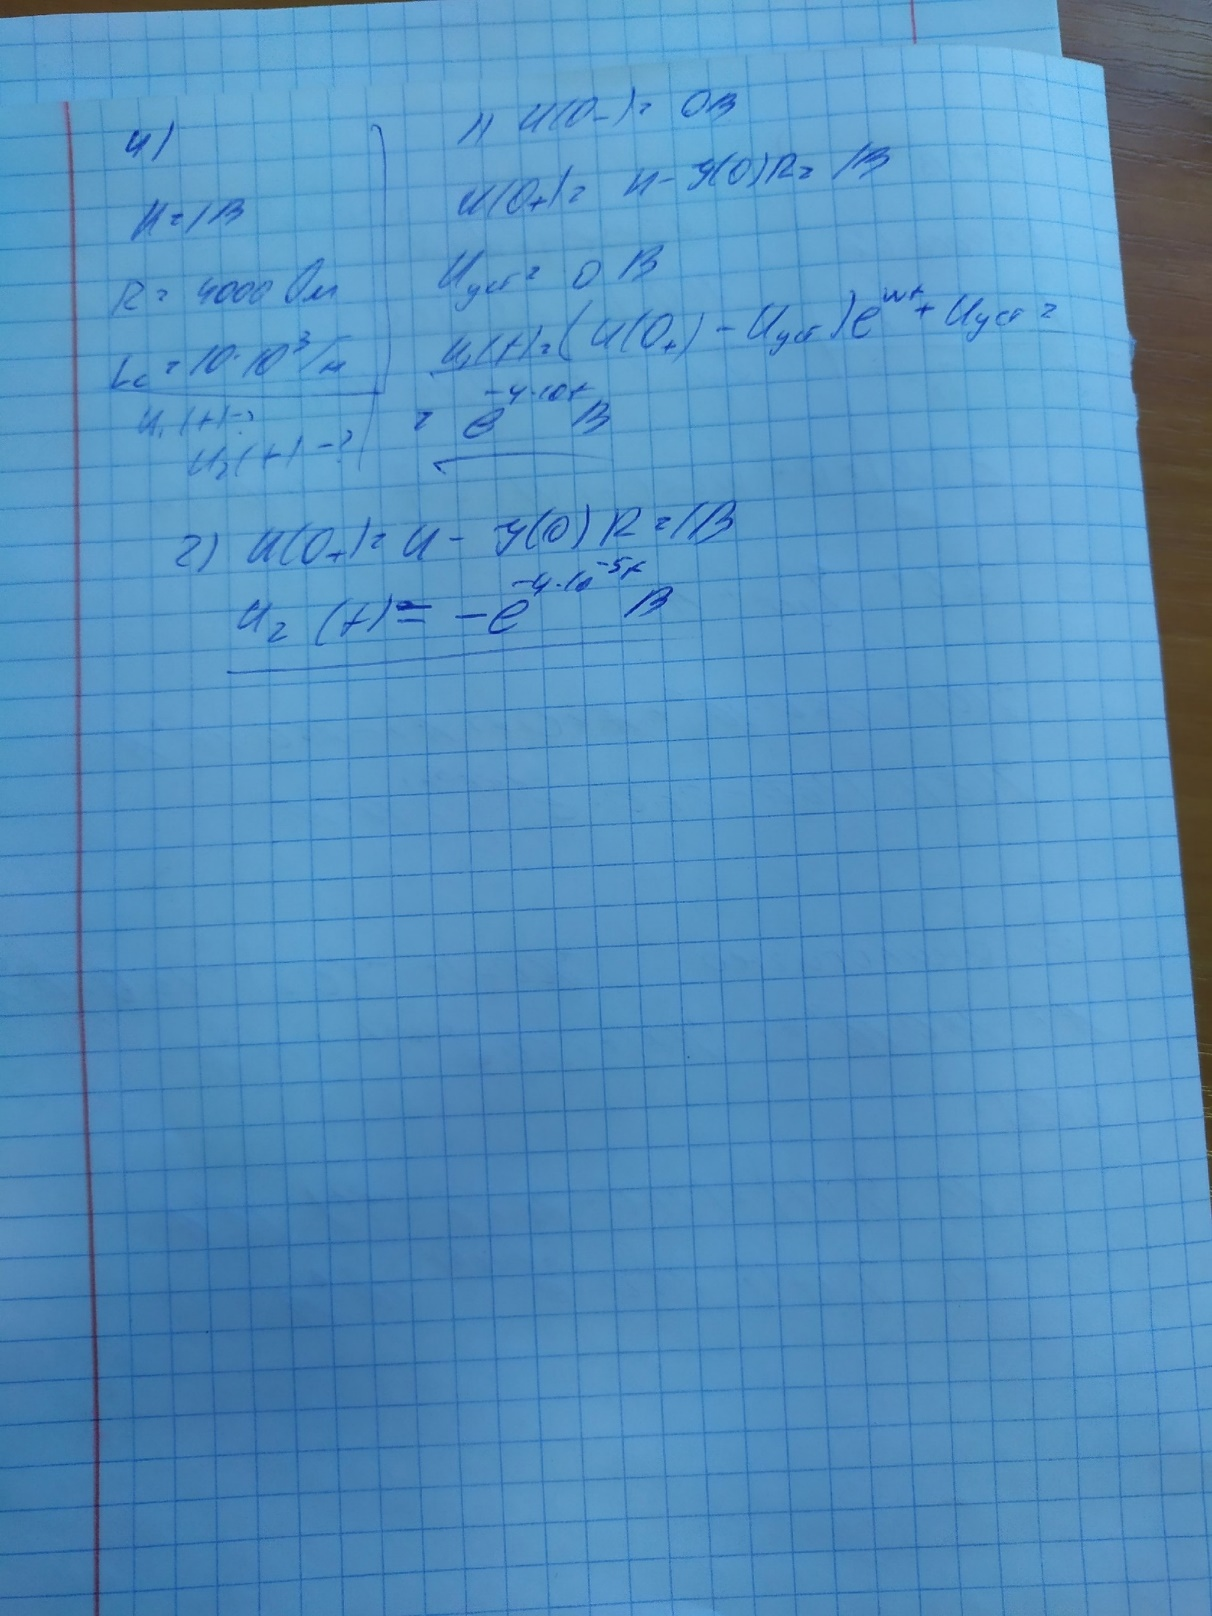 4)
U=1В
R= 4000 Ом
Lс=10·10³ Гн
U₁(t)-?
U₂(t)-?
1) U(0₋)= 0В
U(0₊)= U-У(0)R= 1В
Uуст= 0 В
U₁(t)=(U(0₊)-Uуст)e^wt+Uуст=
= e^-4·10t В
2) U(0₊)= U- У(0)R=1В
U₂ (t)= -e^-4·10^-5t В